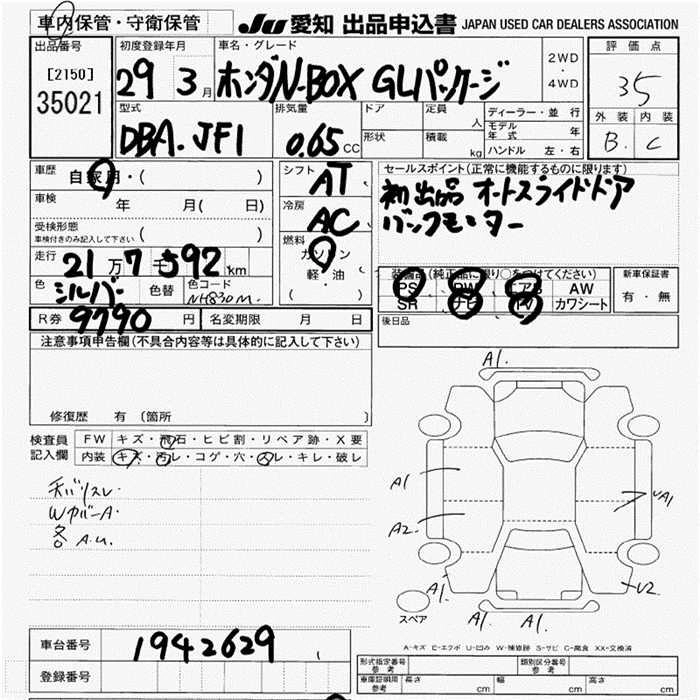 車内保管・守衛保管 JU 愛知 出品申込書 JAPAN USED CAR DEALERS ASSOCIATION
出品番号 初度登録年月 車名・グレード 2WD・4WD 評価点
[2150] 35021 29 3月 ホンダN-BOX GLパッケージ 35
型式 排気量 ドア 定員 人 ディーラー・並行 外装 内装
DBA.JF1 0.65CC 形状 積載 kg モデル年式 年 B. C
ハンドル 左・右
車歴 自家用・( ) シフト AT セールスポイント(正常に機能するものに限ります)
車検 年 月( 日) 冷房 AC 初出品 オートスライドドア
受検形態 車検付きのみ記入して下さい ( ) 燃料 ガソリン バックモニター
走行 21万7千592km 軽・油 ( ) 装備品(純正品に限り○をつけてください) 新車保証書
PS PW エアB AW 有・無
色 シルバー 色替 色コード NH830M SR ナビ TV カワシート
R券 9790円 名変期限 月 日 後日品
注意事項申告欄(不具合内容等は具体的に記入して下さい)
A1.
修復歴 有 〔箇所 〕
検査員記入欄 FW キズ・飛石・ヒビ割・リペア跡・X要
内装 キズ・汚レ・コゲ・穴・スレ・キレ・破レ
A1 A1
WカバーA
各A.U. A2
A1. U2
スペア A1. A1.
A-キズ E-エクボ U-凹み W-補修跡 S-サビ C-腐食 XX-交換済
車台番号 1942629
登録番号
形式指定番号 参考 類別区分番号 参考
車庫証明用 参考 長さ cm 幅 cm 高さ cm